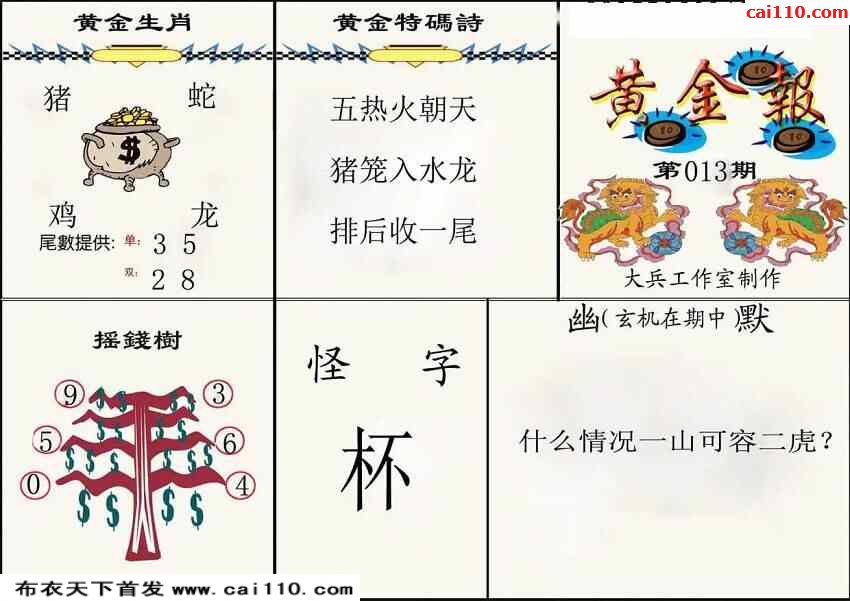 cai110.com
黄金生肖
猪 蛇
$
鸡 龙
尾數提供: 单: 3 5
双: 2 8
黄金特碼詩
五热火朝天
猪笼入水龙
排后收一尾
黄金報
10
10
10
第013期
大兵工作室制作
摇錢樹
9 3
5 6
0 4
怪 字
杯
幽(玄机在期中)默
什么情况一山可容二虎?
布衣天下首发 www.cai110.com